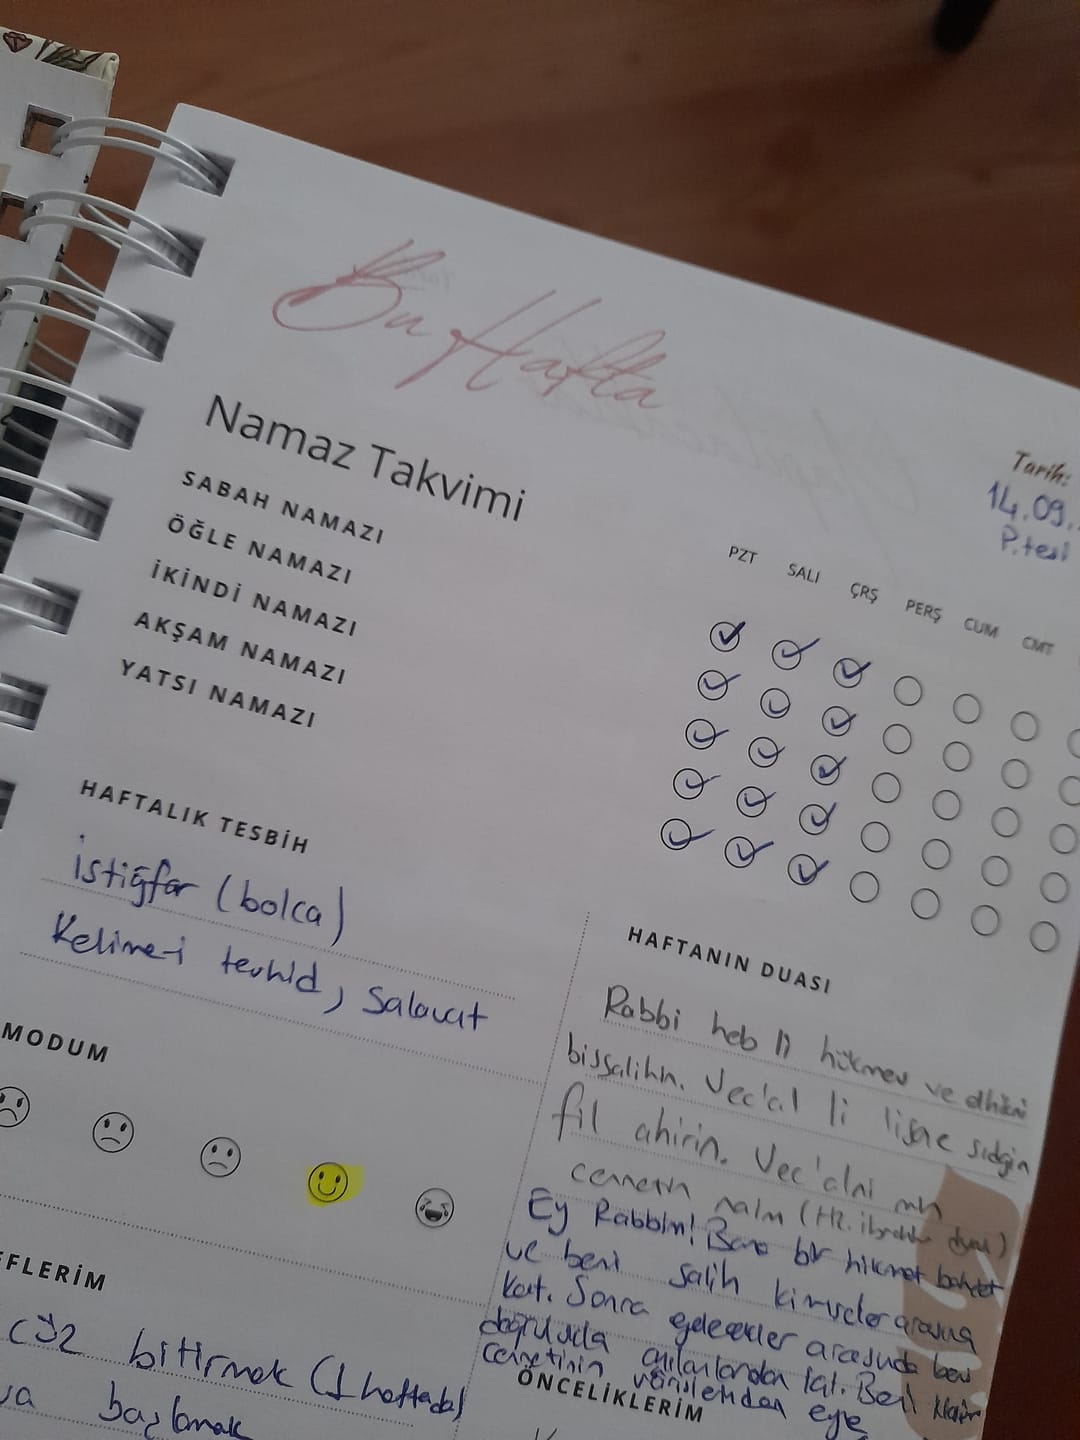 Bu Hafta
Tarih:
14.09.
P.tesi
Namaz Takvimi
PZT SALI ÇRŞ PERŞ CUM CMT
SABAH NAMAZI
ÖĞLE NAMAZI
İKİNDİ NAMAZI
AKŞAM NAMAZI
YATSI NAMAZI
HAFTALIK TESBİH
istiğfar (bolca)
Kelime-i tevhid, Salavat
MODUM
FLERİM
cüz bitirmek (1 haftada)
başlamak
HAFTANIN DUASI
Rabbi heb li hükmev ve elhıkni
bissalihin. Vec'al li lisane sıdgin
fil ahirin. Vec'alni min
cennetin naim (Hz. ibrahim duası)
Ey Rabbim! Bana bir hikmet bahşet
ve beni salih kimseler arasına
kat. Sonra gelecekler arasında beni
doğrulukla anılanlardan kıl. Beni
cennetinin varislerinden eyle
ÖNCELİKLERİM